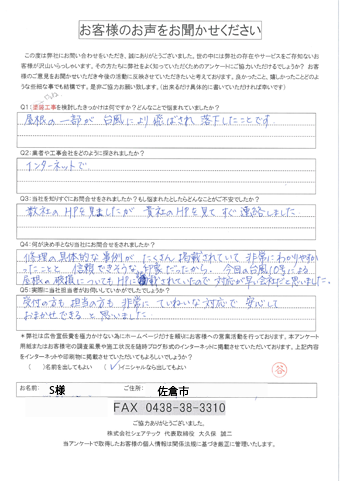 お客様のお声をお聞かせください
この度は弊社にお問い合わせをいただき、誠にありがとうございました。世の中には弊社の存在やサービスをご存知ないお
客様が沢山いらっしゃいます。その方たちに弊社をよく知っていただくためのアンケートにご協力いただけるでしょうか？ お客
様のご意見をお聞かせいただき今後の活動に反映させていきたいと考えております。良かったこと、嬉しかったことどのよ
うな些細な事でも結構です。是非ご協力お願い致します。（出来るだけ具体的に書いていただければ幸いです）
Q1：塗装工事を検討したきっかけは何ですか？どんなことで悩まれていましたか？
屋根の一部が台風により飛ばされ落下したことです。
Q2：業者や工事会社をどのように探されましたか？
インターネットで
Q3：当社を知りすぐにお問合せをされましたか？もし悩まれたとしたらどんなことがご不安でしたか？
数社のHPを見ましたが 貴社のHPを見て すぐ連絡しました
Q4：何が決め手となり当社にお問合せをされましたか？
修理の具体的な事例が たくさん掲載されていて 非常にわかりやすか
ったことと 信頼できそうな印象だったから。今回の台風10号による
屋根の破損についてもHPに掲載されていたので対応が早い会社だと思いました。
Q5：実際に当社担当者がお伺いしていかがでしたでしょうか？
受付の方も 担当の方も 非常に ていねいな対応で 安心して
おまかせできる と思いました
＊弊社は広告宣伝費を極力かけない為にホームページだけを頼りにお客様への営業活動を行っております。本アンケート
用紙またはお客様宅の調査風景や施工状況を随時ブログ形式のインターネットに掲載させていただいております。上記内容
をインターネットや印刷物に掲載させていただいてもよろしいでしょうか？
（ ）名前を出してもよい （✓）イニシャルなら出してもよい
お名前： S様 ご住所： 佐倉市
FAX 0438-38-3310
ご協力ありがとうございました。
株式会社シェアテック 代表取締役 大久保 誠二
当アンケートで取得したお客様の個人情報は関係法規に基づき厳正に管理いたします。